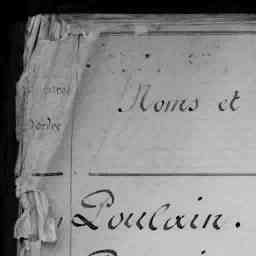 d'ordre
Noms et
Poulain.